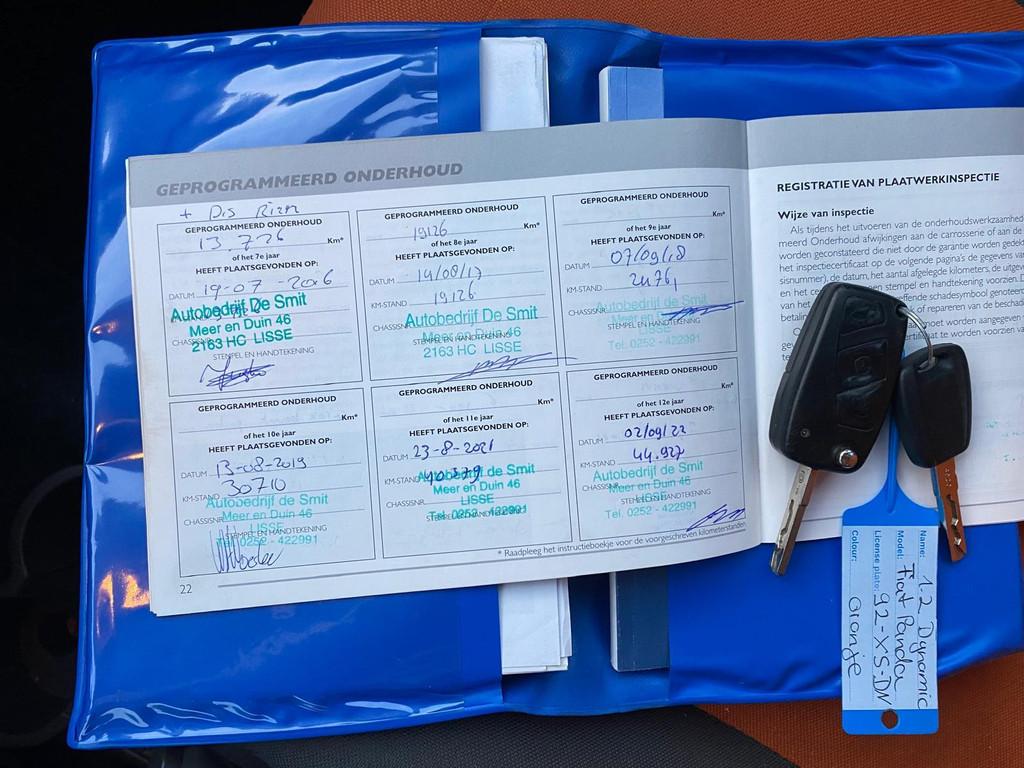 GEPROGRAMMEERD ONDERHOUD
+ Dis Riem
GEPROGRAMMEERD ONDERHOUD
13.726 Km*
of het 7e jaar
HEEFT PLAATSGEVONDEN OP:
DATUM 19-07-2016
Autobedrijf De Smit
Meer en Duin 46
2163 HC LISSE
STEMPEL EN HANDTEKENING
GEPROGRAMMEERD ONDERHOUD
19126 Km*
of het 8e jaar
HEEFT PLAATSGEVONDEN OP:
DATUM 14/08/17
KM-STAND 19126
CHASSISNR.
Autobedrijf De Smit
Meer en Duin 46
2163 HC LISSE
GEPROGRAMMEERD ONDERHOUD
Km*
of het 9e jaar
HEEFT PLAATSGEVONDEN OP:
DATUM 07/09/18
KM-STAND 2476,
CHASSISNR.
Autobedrijf de Smit
Meer en Duin 46
STEMPEL EN HANDTEKENING
Tel. 0252 - 422991
GEPROGRAMMEERD ONDERHOUD
Km*
of het 10e jaar
HEEFT PLAATSGEVONDEN OP:
DATUM 13-08-2019
KM-STAND 30710
CHASSISNR.
Autobedrijf de Smit
Meer en Duin 46
LISSE
STEMPEL EN HANDTEKENING
Tel. 0252 - 422991
GEPROGRAMMEERD ONDERHOUD
Km*
of het 11e jaar
HEEFT PLAATSGEVONDEN OP:
DATUM 23-8-2021
KM-STAND 40379
Autobedrijf de Smit
CHASSISNR.
Meer en Duin 46
LISSE
STEMPEL EN HANDTEKENING
Tel. 0252 - 422991
GEPROGRAMMEERD ONDERHOUD
Km*
of het 12e jaar
HEEFT PLAATSGEVONDEN OP:
DATUM 02/09/22
KM-STAND 44.927
Autobedrijf de Smit
CHASSISNR.
Meer en Duin 46
LISSE
STEMPEL EN HANDTEKENING
Tel. 0252 - 422991
* Raadpleeg het instructieboekje voor de voorgeschreven kilometerstanden
22
REGISTRATIE VAN PLAATWERKINSPECTIE
Wijze van inspectie
Als tijdens het uitvoeren van de onderhoudswerkzaamhed
meerd Onderhoud afwijkingen aan de carrosserie of aan de
worden geconstateerd die niet door de garantie worden gedekt
het inspectiecertificaat op de volgende pagina's de gegevens va
sisnummer), de datum, het aantal afgelegde kilometers, de uitgev
en het ce stempel en handtekening voorzien.
van het effende schadesymbool genoteer
betalin k of repareren van de bescha
moet worden aangegeven
ertificaat te worden voorzien van
Name: 1.2 Dynamic
Model: Fiat Panda
License plate: 92-XS-DN
Colour: oranje